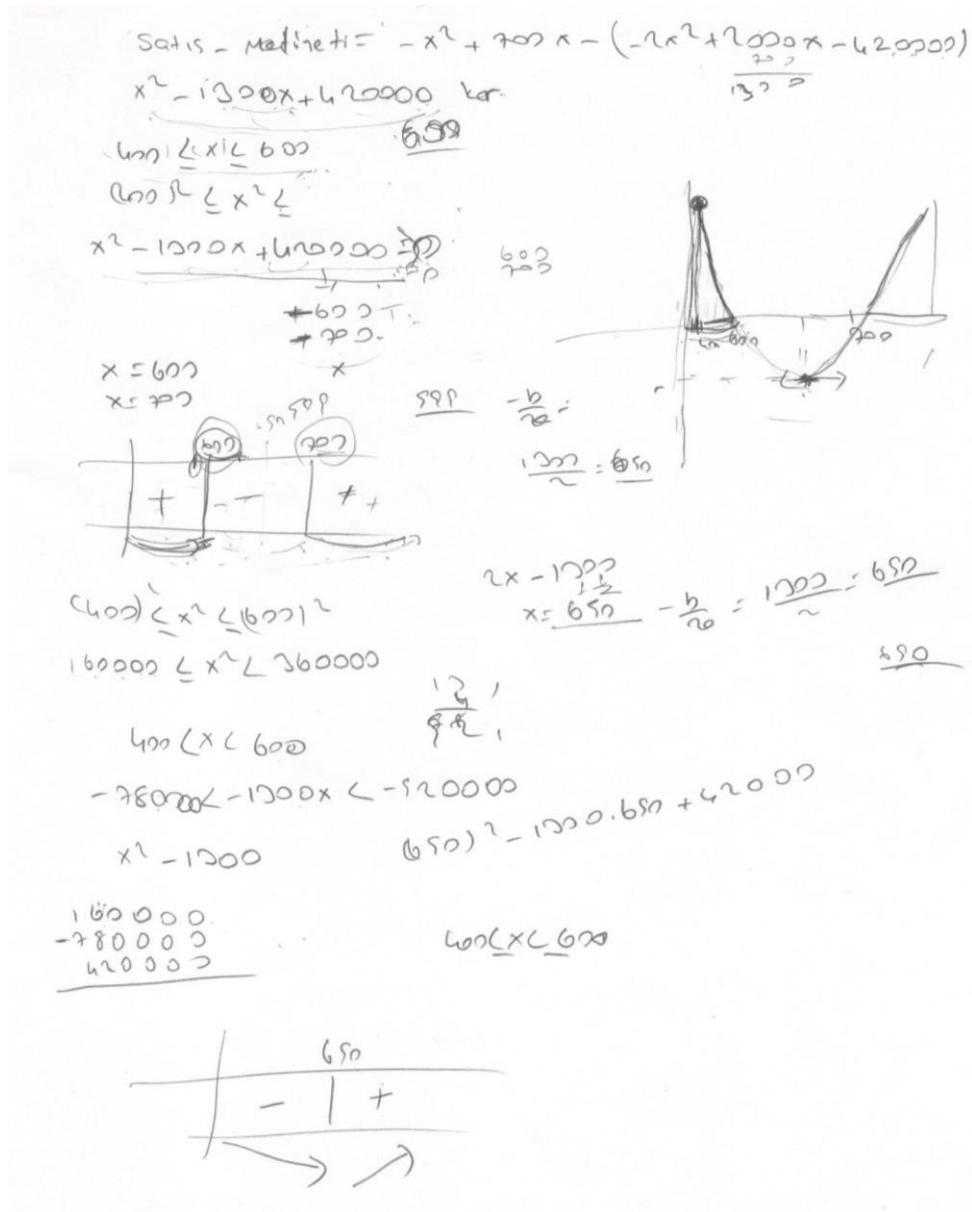 Satıs - Maliyeti = -x² + 700x - (-2x² + 2000x - 420000)
700
1300
x² - 1300x + 420000 kar.
400 ≤ x ≤ 600
(400)² ≤ x² ≤
x² - 1300x + 420000 = 0
600
700
-600
-700
x = 600
x = 700
x
600
700
+ - - + +
599
-b/2a =
1300/2 = 650
400 600
700
2x - 1300
x = 650
-b/2a = 1300/2 = 650
(400)² ≤ x² ≤ (600)²
160000 ≤ x² < 360000
400 < x < 600
-780000 < -1300x < -520000
x² - 1300
(650)² - 1300.650 + 42000
160000
-780000
420000
400 ≤ x ≤ 600
650
- +